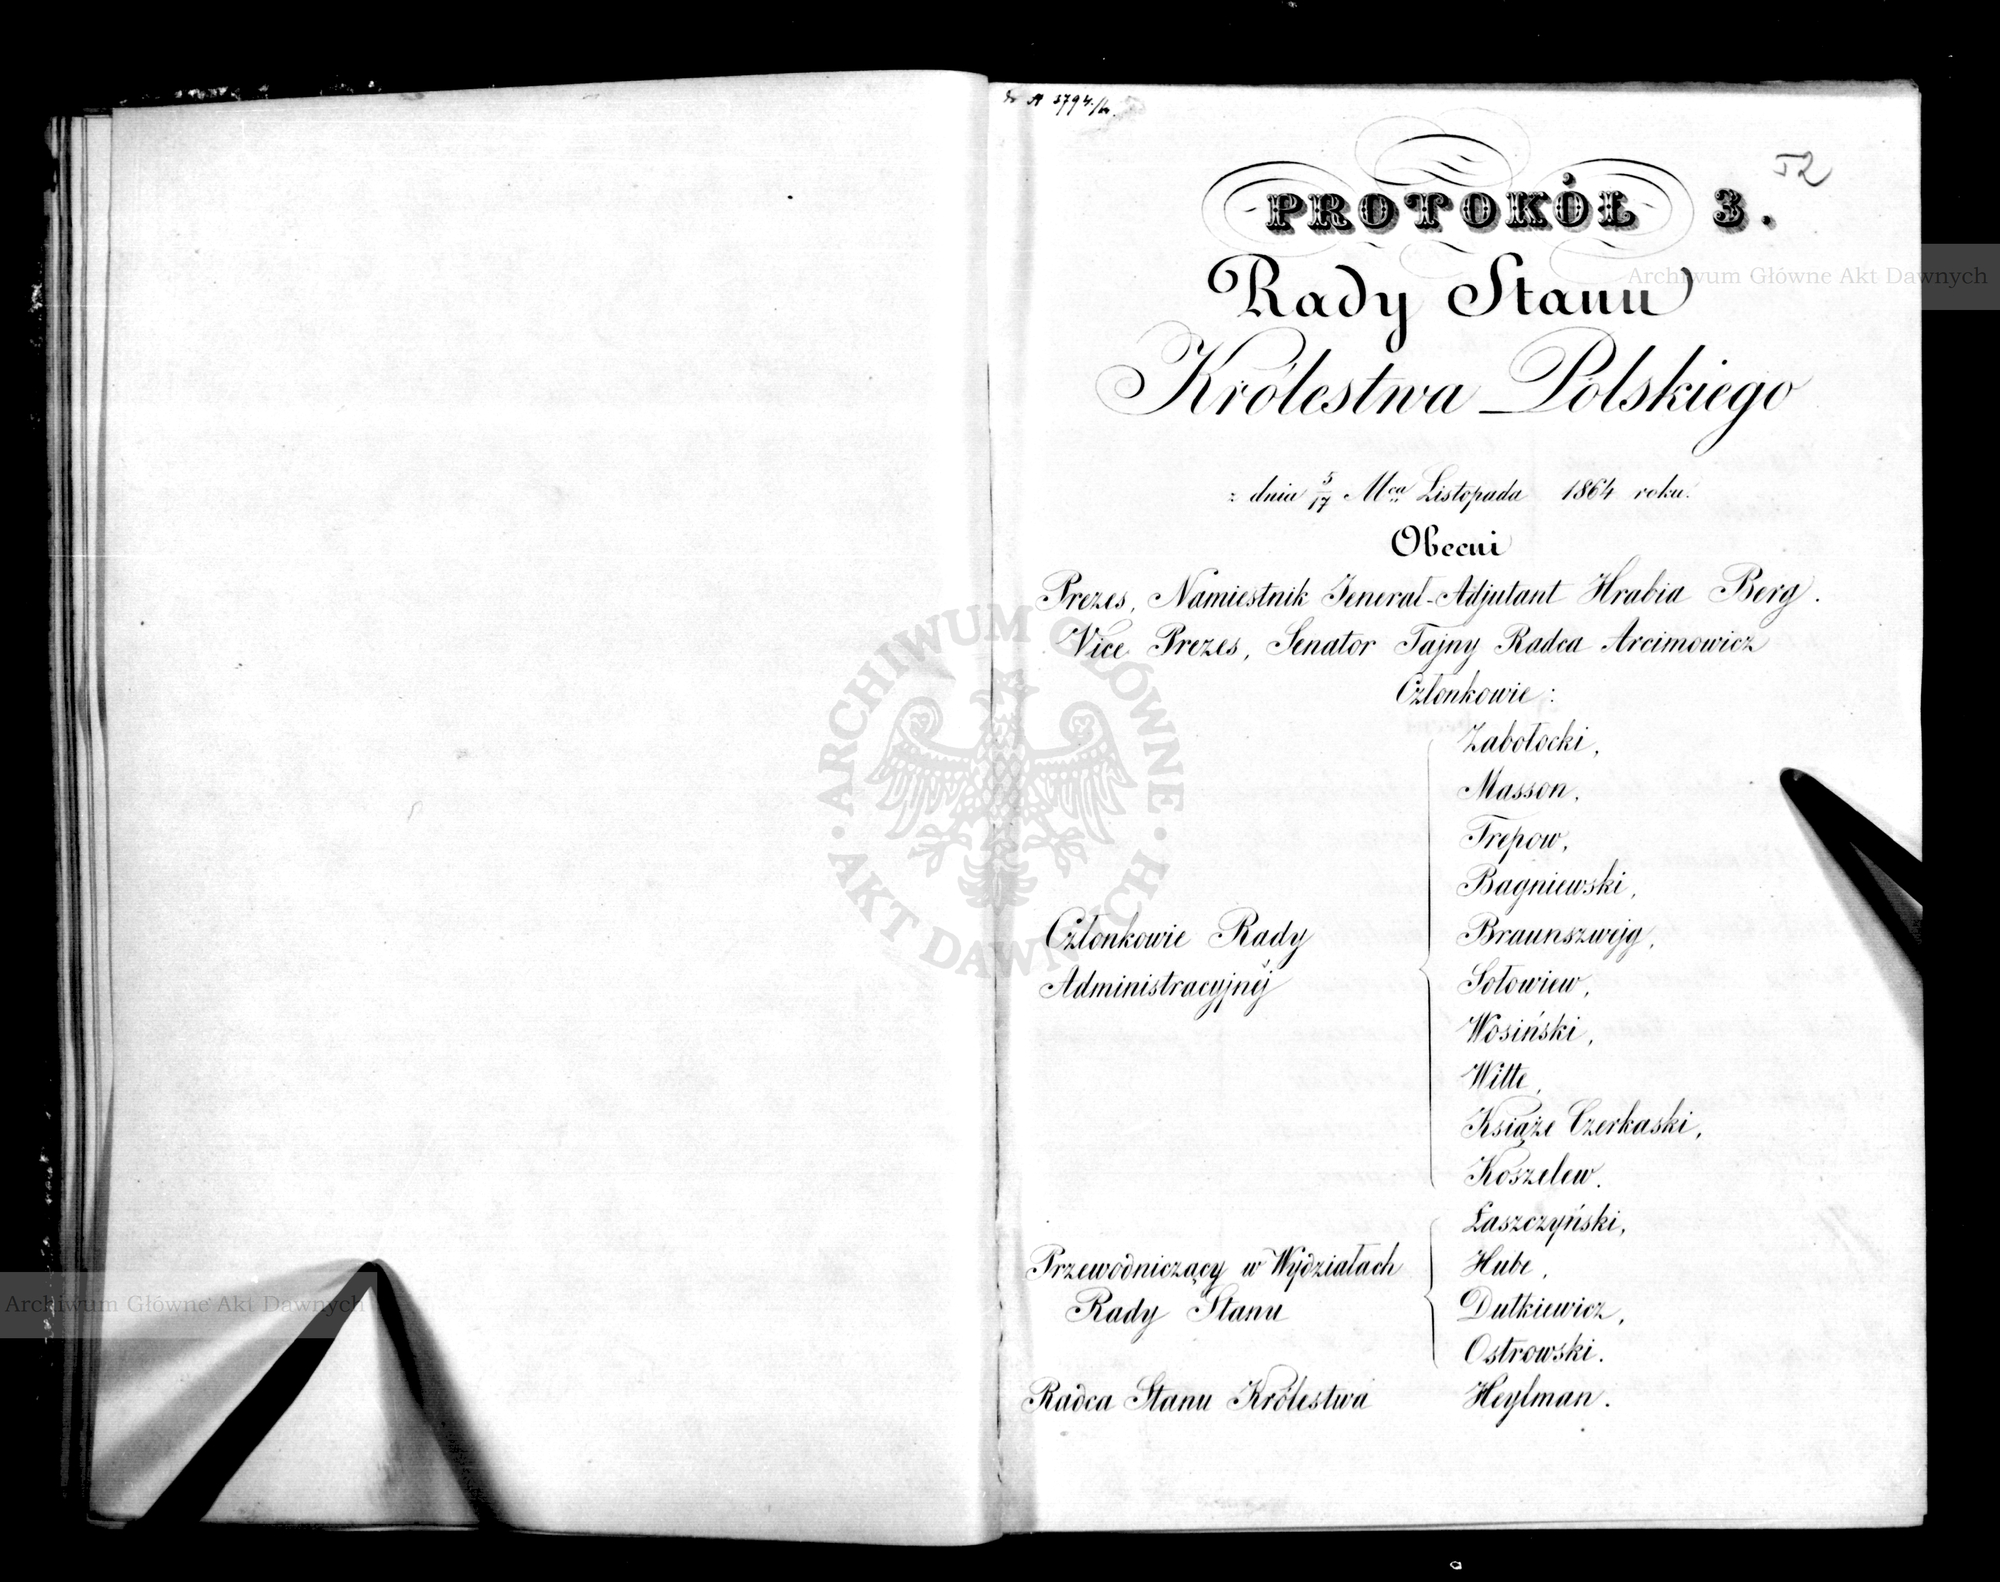 do N 3794/b.
52
PROTOKÓŁ 3.
Rady Stanu
Królestwa Polskiego
z dnia 5/17 Mca Listopada 1864 roku.
Obecni
Prezes, Namiestnik Jenerał-Adjutant Hrabia Berg.
Vice Prezes, Senator Tajny Radca Arcimowicz
Członkowie:
Zabołocki,
Masson,
Trepow,
Bagniewski,
Członkowie Rady Braunszwejg,
Administracyjnéj Sołowiew,
Wosiński,
Witte,
Książe Czerkaski,
Koszelew.
Łaszczyński,
Przewodniczący w Wydziałach Hube,
Rady Stanu Dutkiewicz,
Ostrowski.
Radca Stanu Królestwa Heylman.
Archiwum Główne Akt Dawnych
ARCHIWUM GŁÓWNE AKT DAWNYCH
Archiwum Główne Akt Dawnych